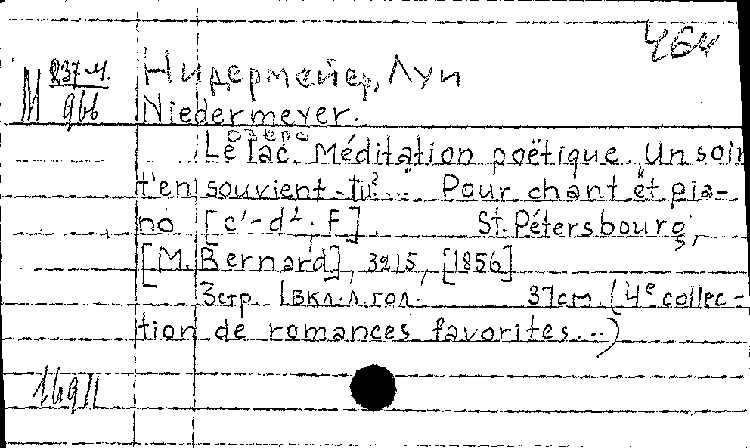 464
М 237-М. / 966
Нидермейер, Луи
Niedermeyer.
озеро
Le lac. Méditation poëtique. "Un soir
t'en souvient-tu?..." Pour chant et pia-
no [c'-d². F] St. Pétersbourg,
[M. Bernard], 3215, [1856]
3 стр. 1 вкл. л. гол. 37cm. (4e collec-
tion de romances favorites...)